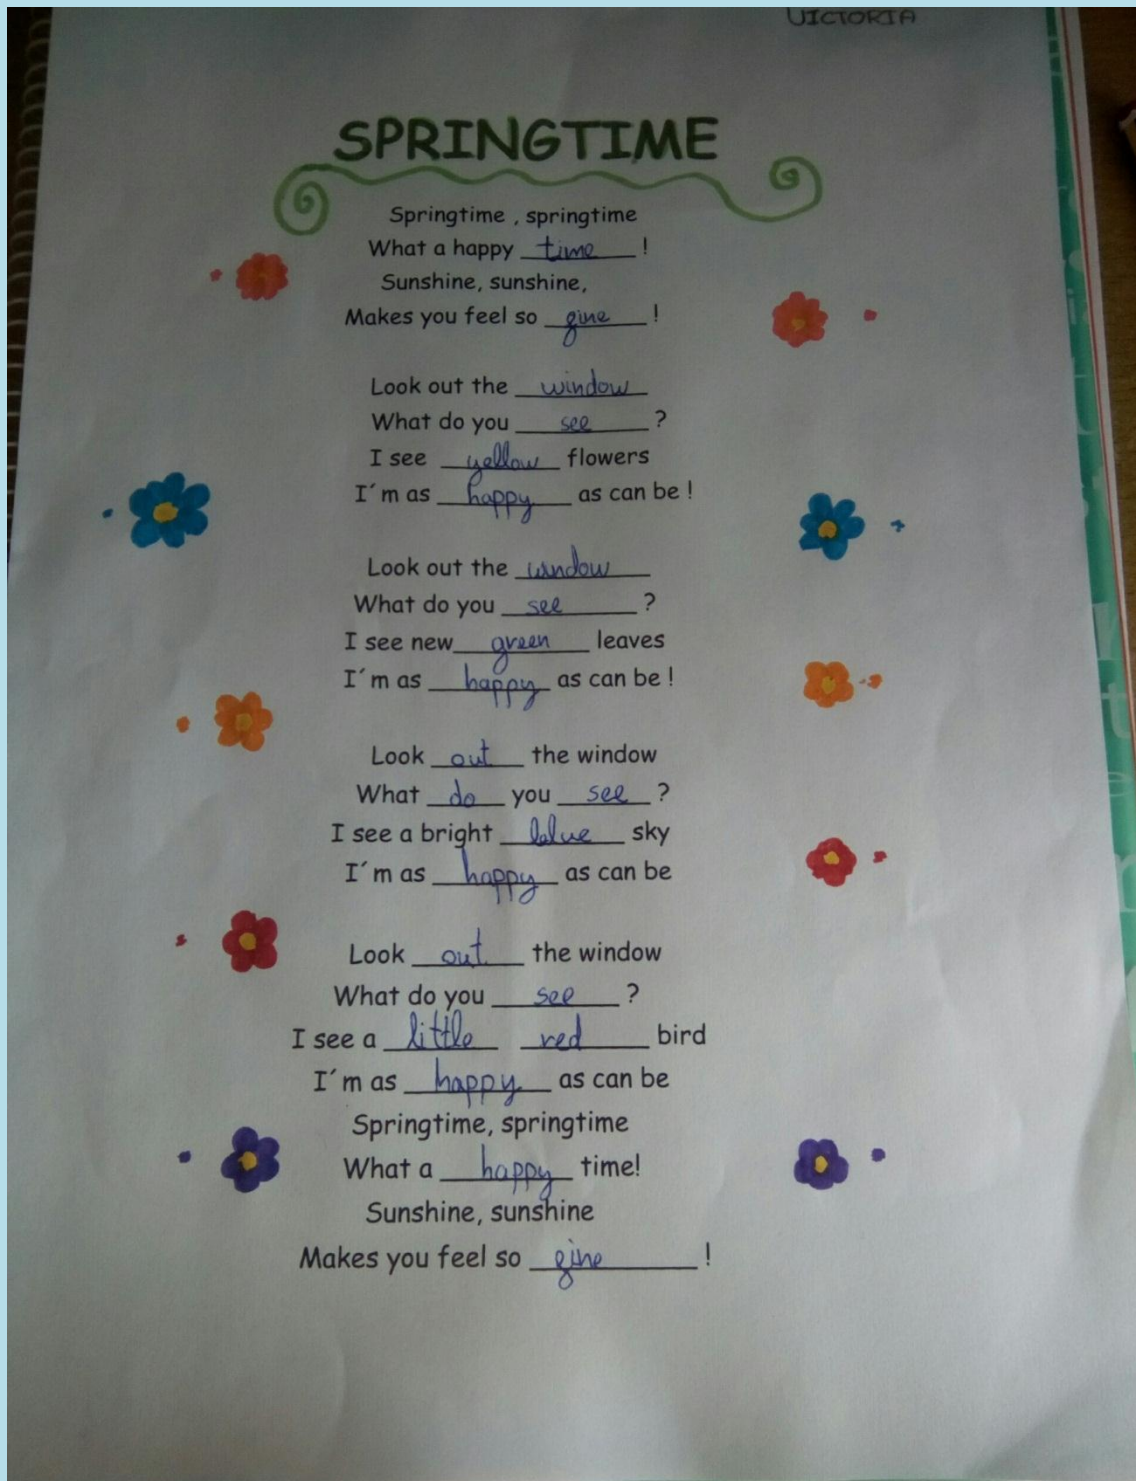 VICTORIA
SPRINGTIME
Springtime , springtime
What a happy time !
Sunshine, sunshine,
Makes you feel so fine !
Look out the window
What do you see ?
I see yellow flowers
I´m as happy as can be !
Look out the window
What do you see ?
I see new green leaves
I´m as happy as can be !
Look out the window
What do you see ?
I see a bright blue sky
I´m as happy as can be
Look out the window
What do you see ?
I see a little red bird
I´m as happy as can be
Springtime, springtime
What a happy time!
Sunshine, sunshine
Makes you feel so fine !